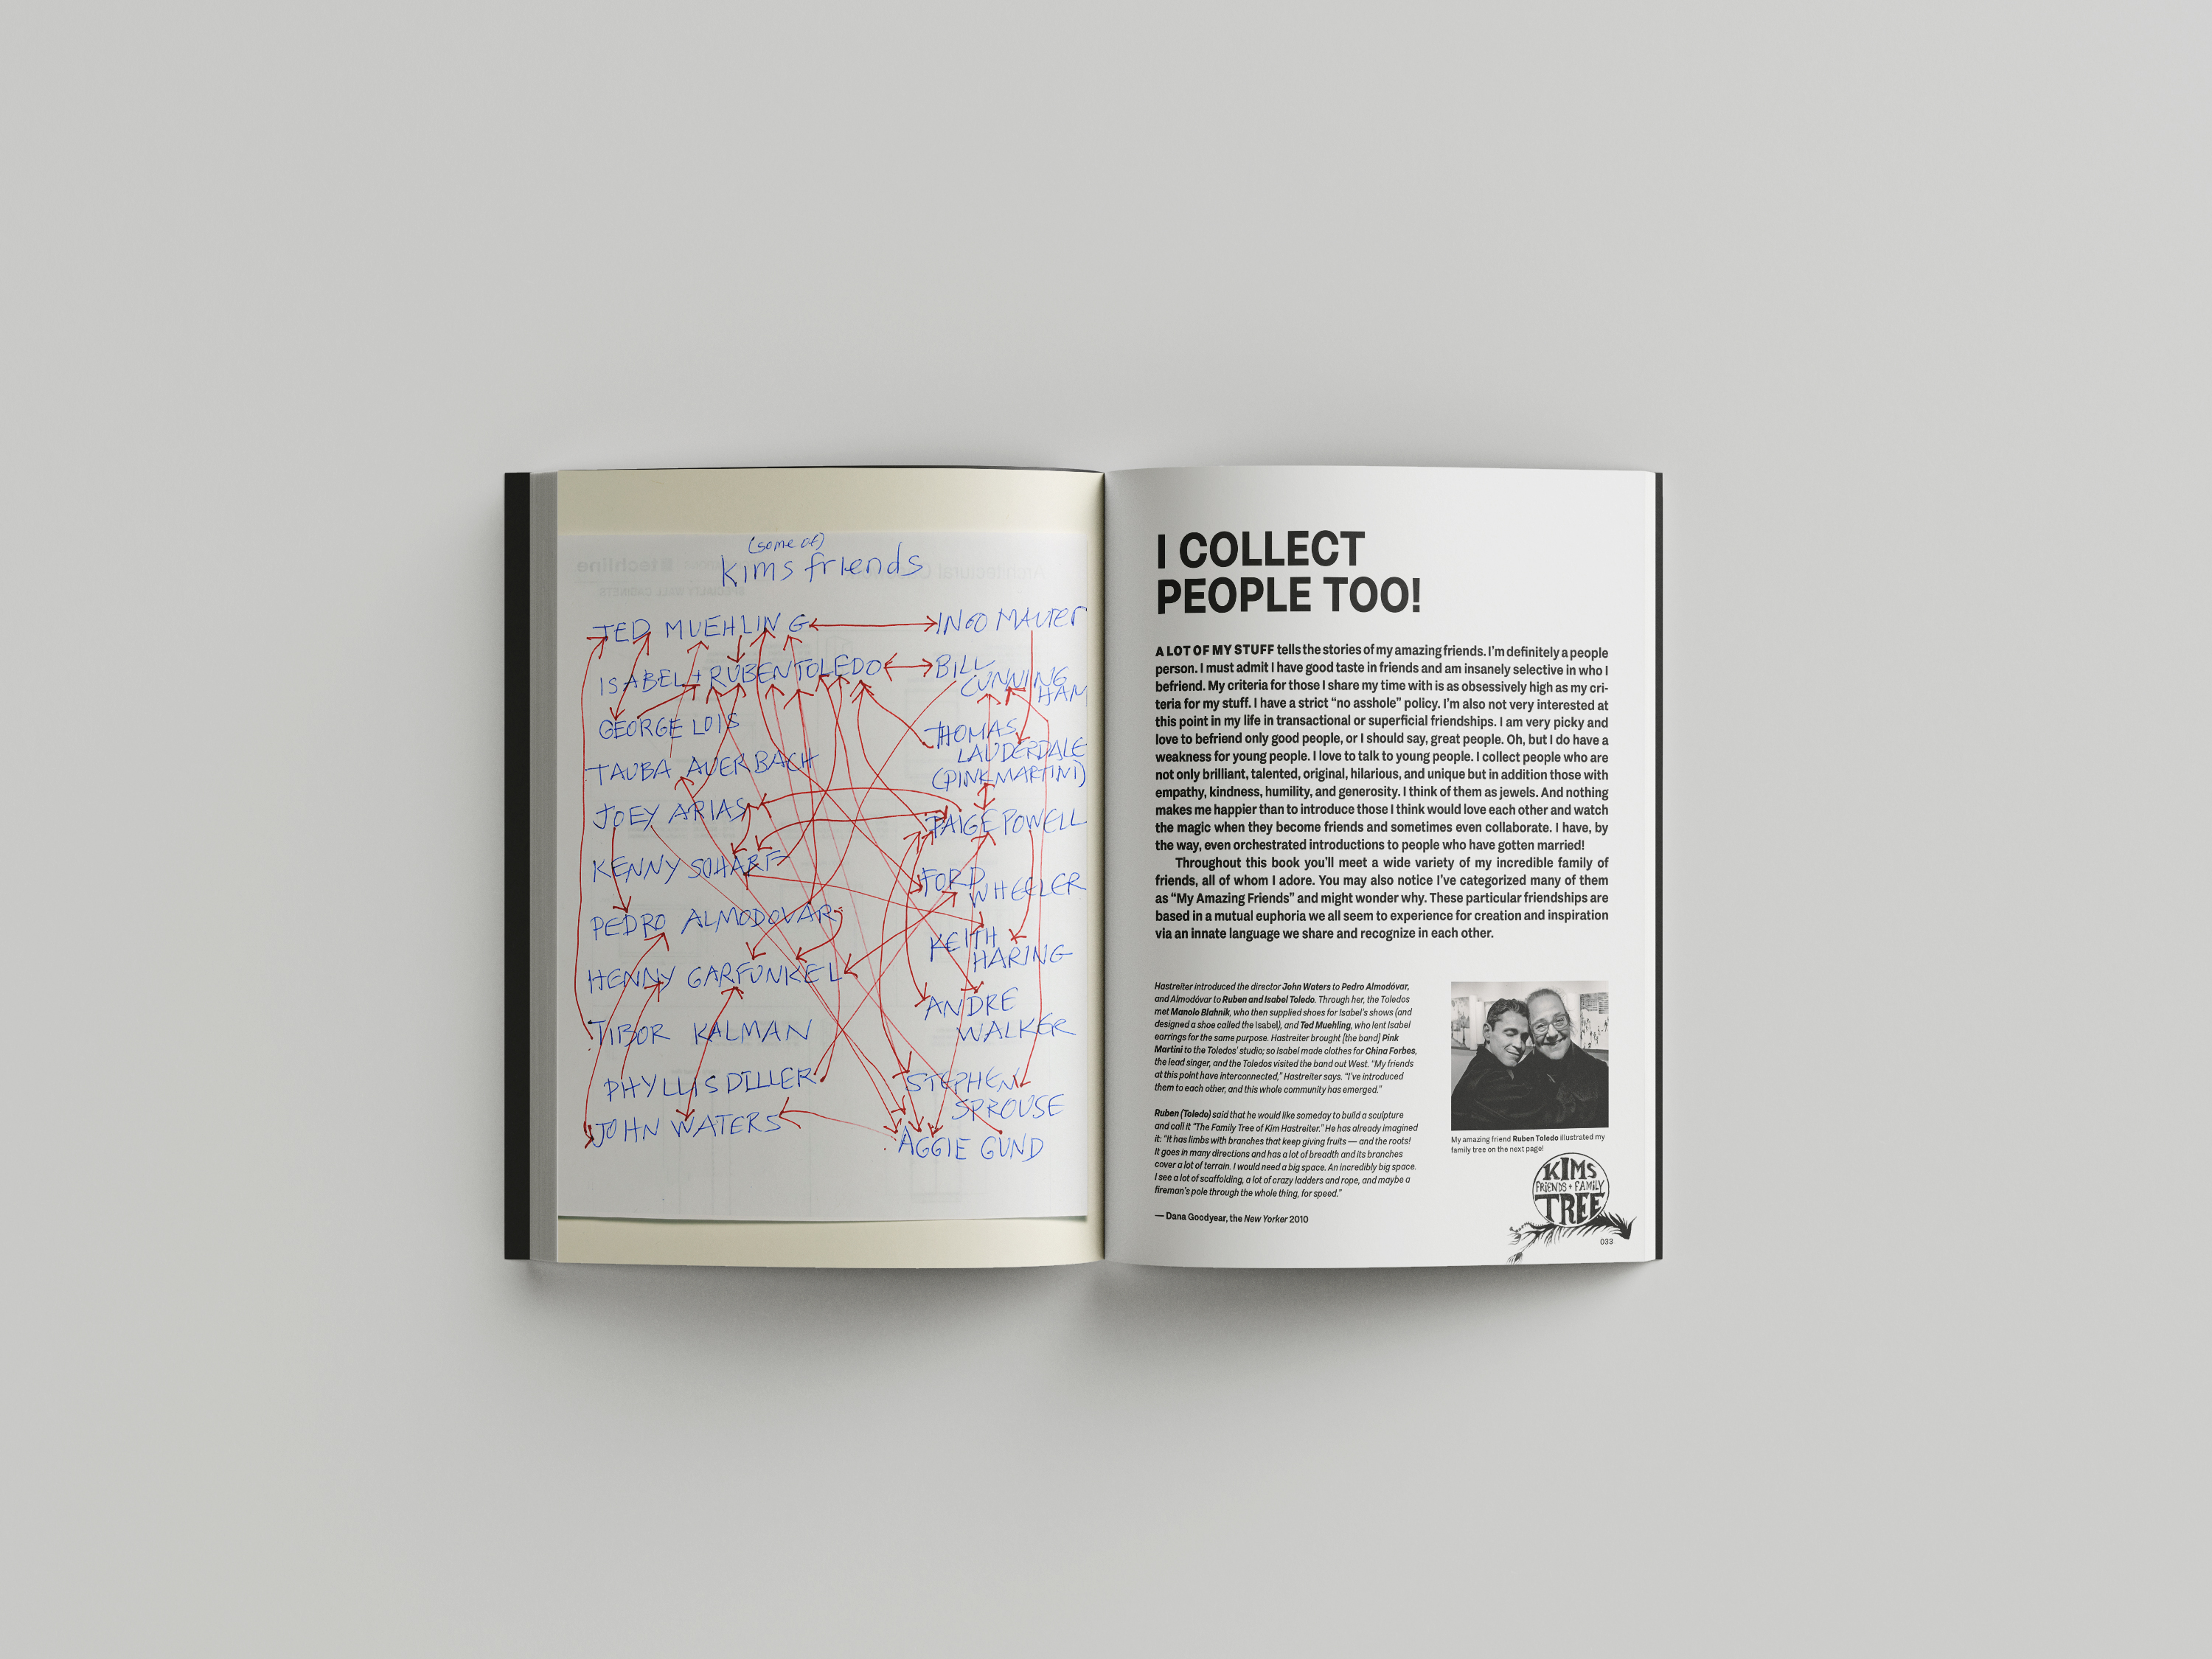 (some of)
kims friends
TED MUEHLING
INGO MAURER
ISABEL + RUBEN TOLEDO
BILL
CUNNING
HAM
GEORGE LOIS
THOMAS
LAUDERDALE
(PINK MARTINI)
TAUBA AUERBACH
JOEY ARIAS
PAIGE POWELL
KENNY SCHARF
FORD
WHEELER
PEDRO ALMODOVAR
KEITH
HARING
HENNY GARFUNKEL
ANDRE
WALKER
TIBOR KALMAN
PHYLLIS DILLER
STEPHEN
SPROUSE
JOHN WATERS
AGGIE GUND
I COLLECT
PEOPLE TOO!
A LOT OF MY STUFF tells the stories of my amazing friends. I'm definitely a people
person. I must admit I have good taste in friends and am insanely selective in who I
befriend. My criteria for those I share my time with is as obsessively high as my cri-
teria for my stuff. I have a strict “no asshole” policy. I'm also not very interested at
this point in my life in transactional or superficial friendships. I am very picky and
love to befriend only good people, or I should say, great people. Oh, but I do have a
weakness for young people. I love to talk to young people. I collect people who are
not only brilliant, talented, original, hilarious, and unique but in addition those with
empathy, kindness, humility, and generosity. I think of them as jewels. And nothing
makes me happier than to introduce those I think would love each other and watch
the magic when they become friends and sometimes even collaborate. I have, by
the way, even orchestrated introductions to people who have gotten married!
Throughout this book you'll meet a wide variety of my incredible family of
friends, all of whom I adore. You may also notice I've categorized many of them
as “My Amazing Friends” and might wonder why. These particular friendships are
based in a mutual euphoria we all seem to experience for creation and inspiration
via an innate language we share and recognize in each other.
Hastreiter introduced the director John Waters to Pedro Almodóvar,
and Almodóvar to Ruben and Isabel Toledo. Through her, the Toledos
met Manolo Blahnik, who then supplied shoes for Isabel's shows (and
designed a shoe called the Isabel), and Ted Muehling, who lent Isabel
earrings for the same purpose. Hastreiter brought [the band] Pink
Martini to the Toledos' studio; so Isabel made clothes for China Forbes,
the lead singer, and the Toledos visited the band out West. “My friends
at this point have interconnected,” Hastreiter says. “I've introduced
them to each other, and this whole community has emerged.”
Ruben (Toledo) said that he would like someday to build a sculpture
and call it “The Family Tree of Kim Hastreiter.” He has already imagined
it: “It has limbs with branches that keep giving fruits — and the roots!
It goes in many directions and has a lot of breadth and its branches
cover a lot of terrain. I would need a big space. An incredibly big space.
I see a lot of scaffolding, a lot of crazy ladders and rope, and maybe a
fireman's pole through the whole thing, for speed.”
— Dana Goodyear, the New Yorker 2010
My amazing friend Ruben Toledo illustrated my
family tree on the next page!
KIMS
FRIENDS + FAMILY
TREE
033